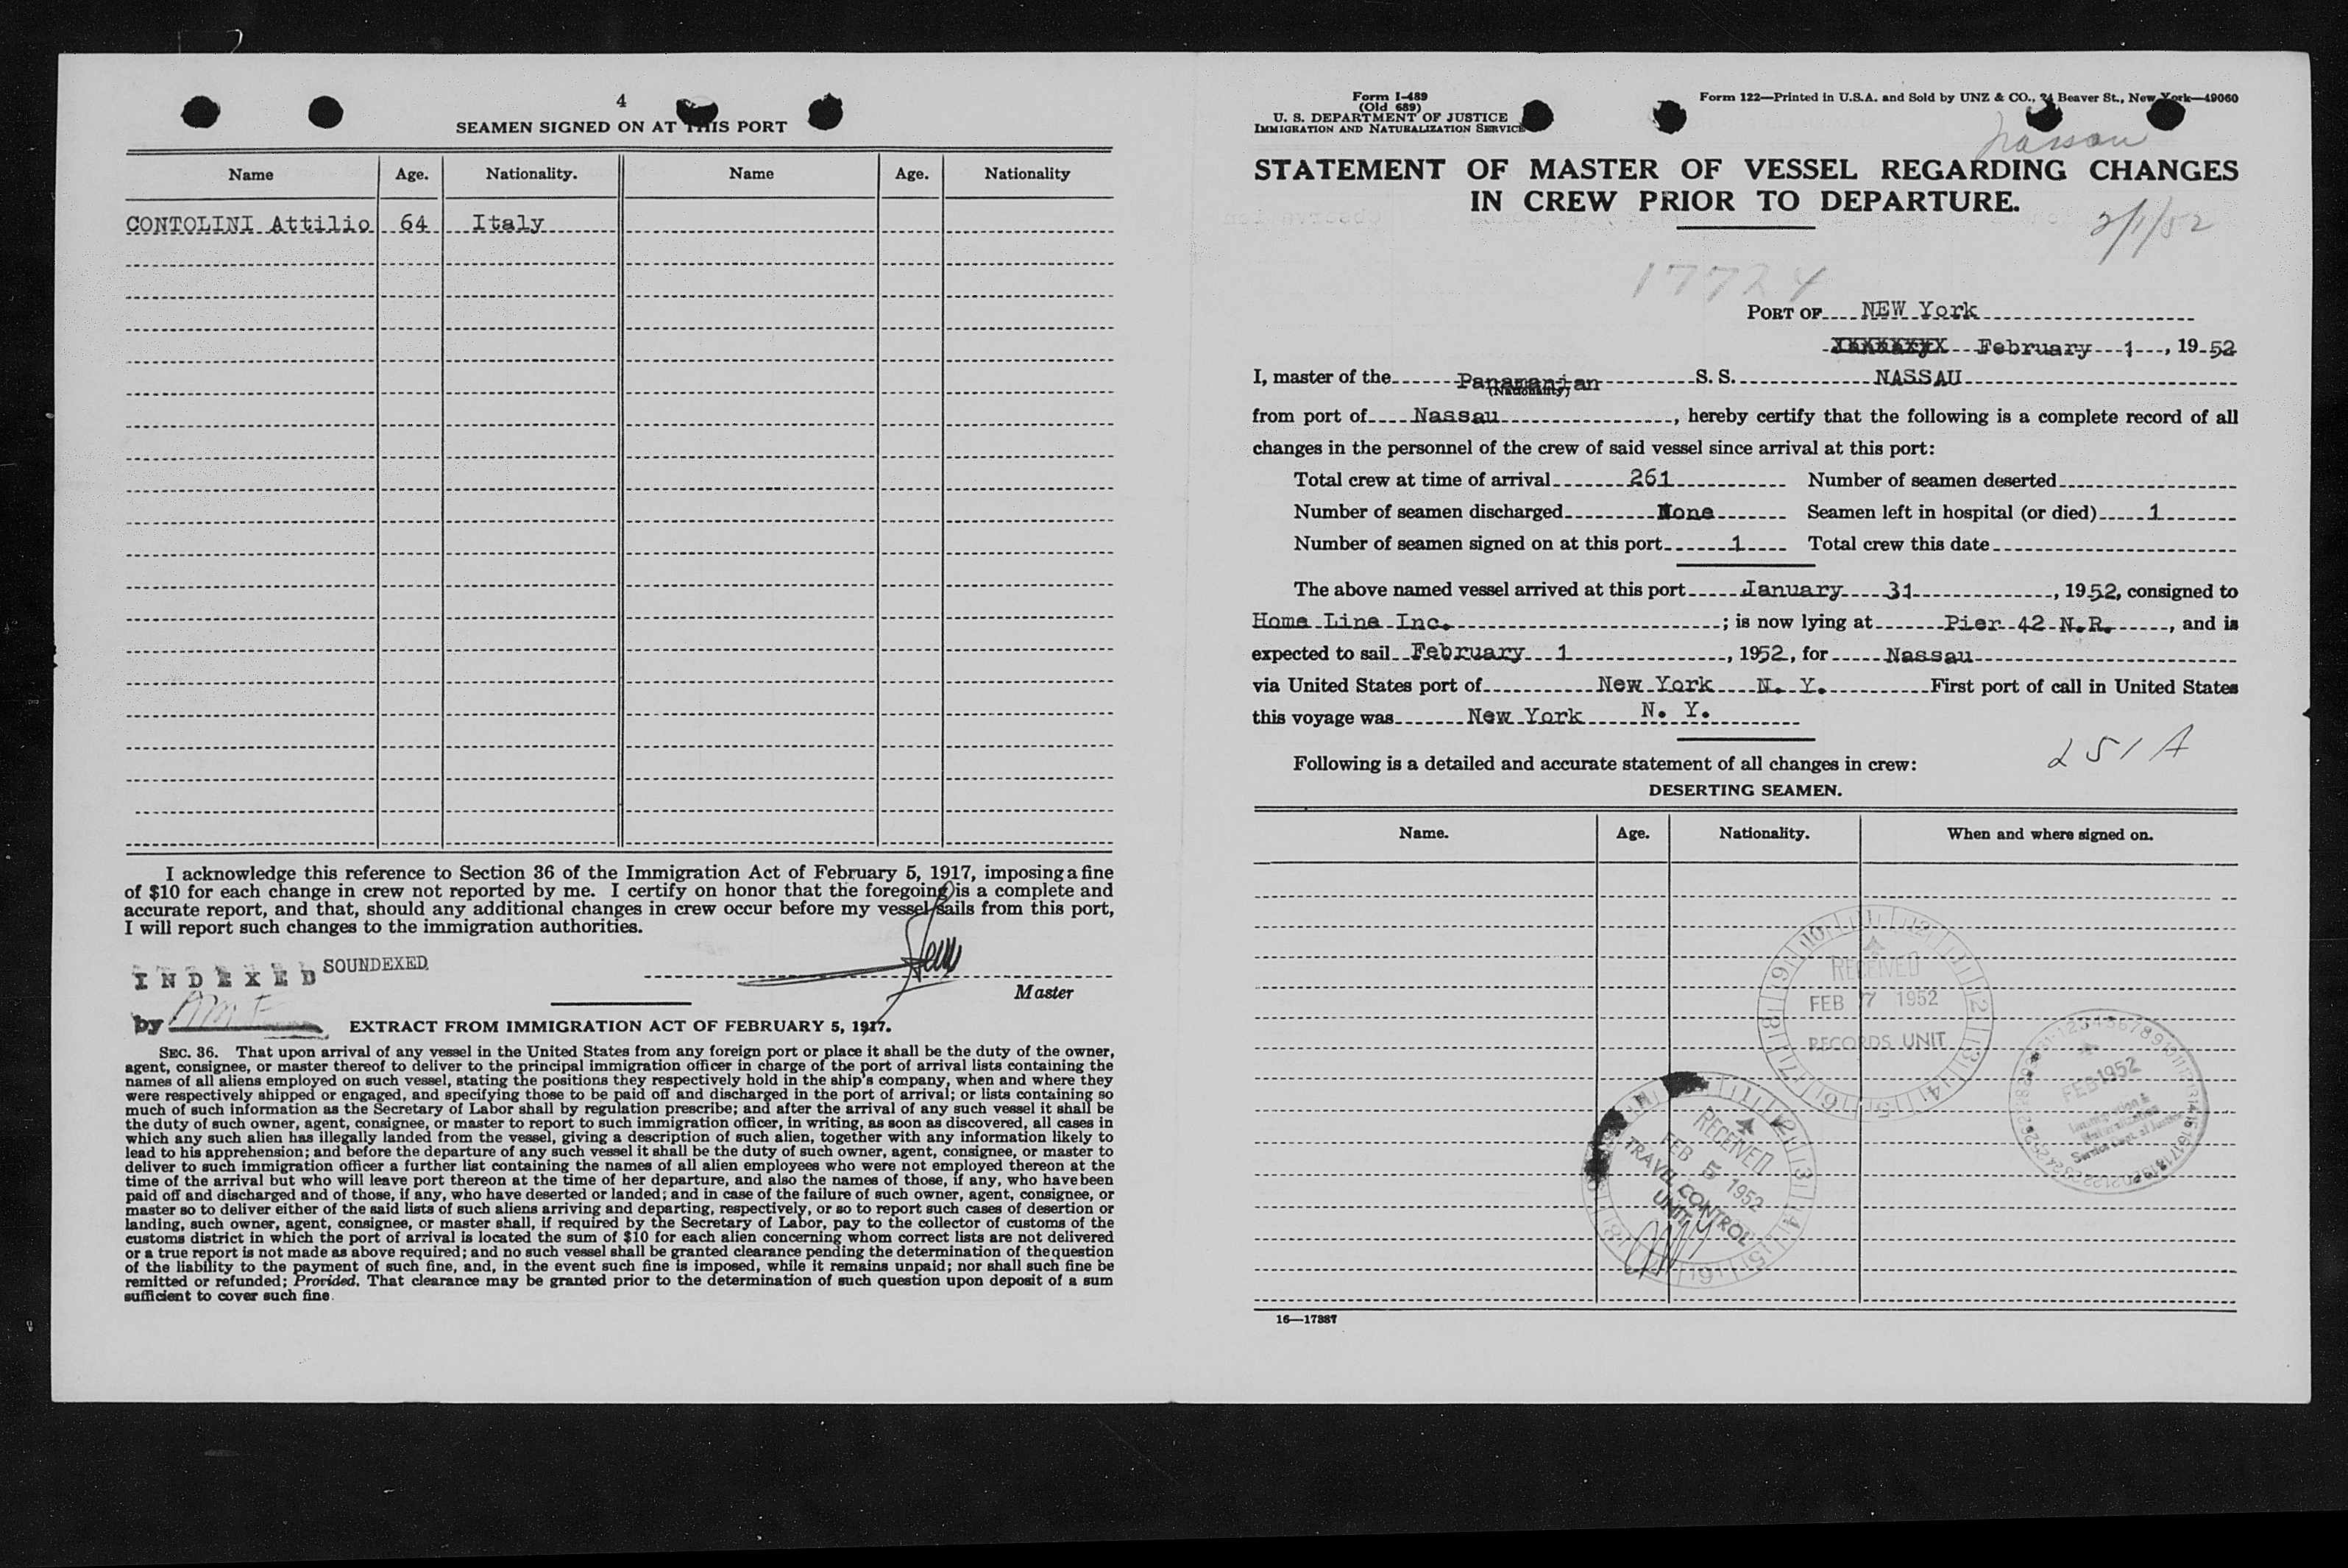 4
SEAMEN SIGNED ON AT THIS PORT
Name Age. Nationality. Name Age. Nationality
CONTOLINI Attilio 64 Italy
I acknowledge this reference to Section 36 of the Immigration Act of February 5, 1917, imposing a fine
of $10 for each change in crew not reported by me. I certify on honor that the foregoing is a complete and
accurate report, and that, should any additional changes in crew occur before my vessel sails from this port,
I will report such changes to the immigration authorities.
INDEXED SOUNDEXED
Master
by
EXTRACT FROM IMMIGRATION ACT OF FEBRUARY 5, 1917.
SEC. 36. That upon arrival of any vessel in the United States from any foreign port or place it shall be the duty of the owner,
agent, consignee, or master thereof to deliver to the principal immigration officer in charge of the port of arrival lists containing the
names of all aliens employed on such vessel, stating the positions they respectively hold in the ship's company, when and where they
were respectively shipped or engaged, and specifying those to be paid off and discharged in the port of arrival; or lists containing so
much of such information as the Secretary of Labor shall by regulation prescribe; and after the arrival of any such vessel it shall be
the duty of such owner, agent, consignee, or master to report to such immigration officer, in writing, as soon as discovered, all cases in
which any such alien has illegally landed from the vessel, giving a description of such alien, together with any information likely to
lead to his apprehension; and before the departure of any such vessel it shall be the duty of such owner, agent, consignee, or master to
deliver to such immigration officer a further list containing the names of all alien employees who were not employed thereon at the
time of the arrival but who will leave port thereon at the time of her departure, and also the names of those, if any, who have been
paid off and discharged and of those, if any, who have deserted or landed; and in case of the failure of such owner, agent, consignee, or
master so to deliver either of the said lists of such aliens arriving and departing, respectively, or so to report such cases of desertion or
landing, such owner, agent, consignee, or master shall, if required by the Secretary of Labor, pay to the collector of customs of the
customs district in which the port of arrival is located the sum of $10 for each alien concerning whom correct lists are not delivered
or a true report is not made as above required; and no such vessel shall be granted clearance pending the determination of the question
of the liability to the payment of such fine, and, in the event such fine is imposed, while it remains unpaid; nor shall such fine be
remitted or refunded; Provided, That clearance may be granted prior to the determination of such question upon deposit of a sum
sufficient to cover such fine.
Form I-489
(Old 689)
U. S. DEPARTMENT OF JUSTICE
IMMIGRATION AND NATURALIZATION SERVICE
Form 122—Printed in U.S.A. and Sold by UNZ & CO., 24 Beaver St., New York—49060
Nassau
STATEMENT OF MASTER OF VESSEL REGARDING CHANGES
IN CREW PRIOR TO DEPARTURE.
2/1/52
17724
PORT OF NEW York
February 1, 1952
I, master of the Panamanian S. S. NASSAU
(Nationality)
from port of Nassau, hereby certify that the following is a complete record of all
changes in the personnel of the crew of said vessel since arrival at this port:
Total crew at time of arrival 261 Number of seamen deserted
Number of seamen discharged None Seamen left in hospital (or died) 1
Number of seamen signed on at this port 1 Total crew this date
The above named vessel arrived at this port January 31, 1952, consigned to
Home Line Inc.; is now lying at Pier 42 N.R., and is
expected to sail February 1, 1952, for Nassau
via United States port of New York N. Y. First port of call in United States
this voyage was New York N. Y.
251 A
Following is a detailed and accurate statement of all changes in crew:
DESERTING SEAMEN.
Name. Age. Nationality. When and where signed on.
RECEIVED
FEB 7 1952
RECORDS UNIT
FEB 1952
Immigration &
Naturalization
Service Dept. of Justice
RECEIVED
FEB 5 1952
TRAVEL CONTROL
UNIT
16—17387